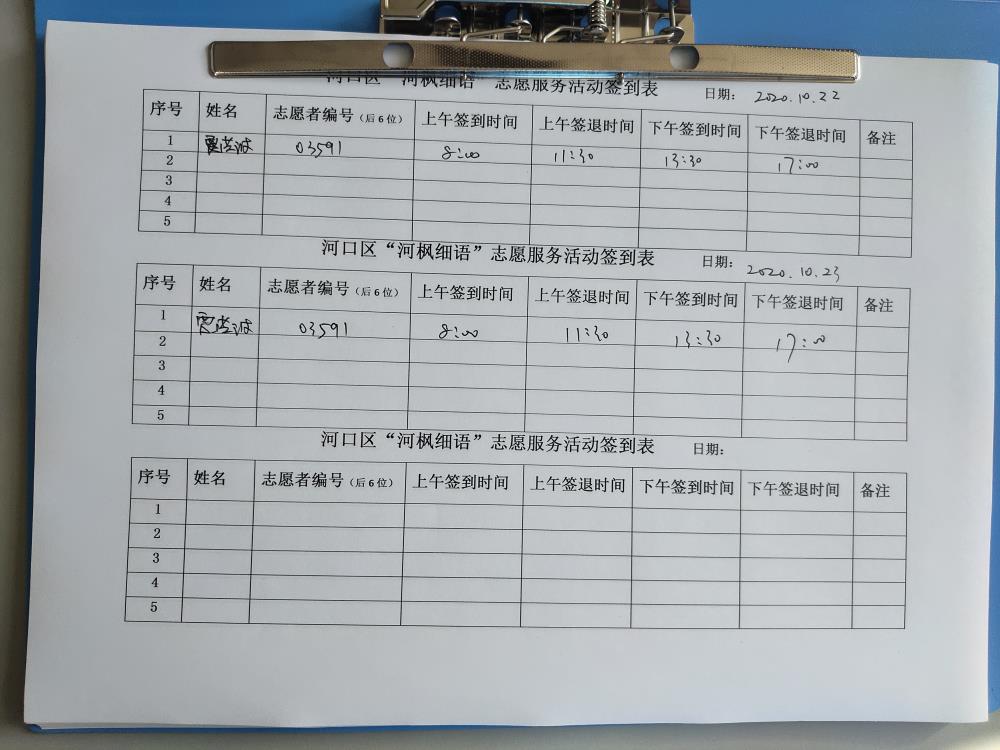 河口区“河枫细语”志愿服务活动签到表 日期： 2020.10.22
序号 姓名 志愿者编号（后6位） 上午签到时间 上午签退时间 下午签到时间 下午签退时间 备注
1 03591 8:00 11:30 13:30 17:00
2
3
4
5
河口区“河枫细语”志愿服务活动签到表 日期： 2020.10.23
序号 姓名 志愿者编号（后6位） 上午签到时间 上午签退时间 下午签到时间 下午签退时间 备注
1 03591 8:00 11:30 13:30 17:00
2
3
4
5
河口区“河枫细语”志愿服务活动签到表 日期：
序号 姓名 志愿者编号（后6位） 上午签到时间 上午签退时间 下午签到时间 下午签退时间 备注
1
2
3
4
5